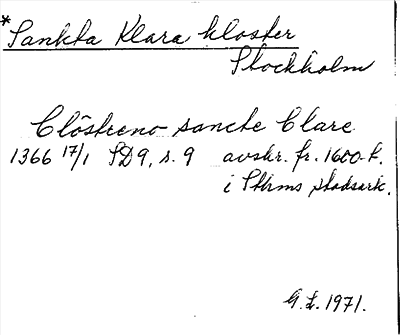 *Sankta Klara kloster
Stockholm
Clôstreno sancte Clare
1366 17/1 SD9, s. 9 avskr. fr. 1600-t.
i Sthms stadsark.
G.L. 1971.